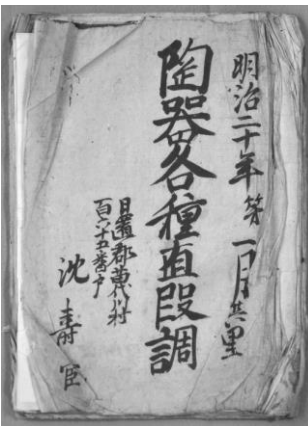 明治二十年第一月
陶器各種直段調
日置郡苗代村
百六十五番戸
沈壽官